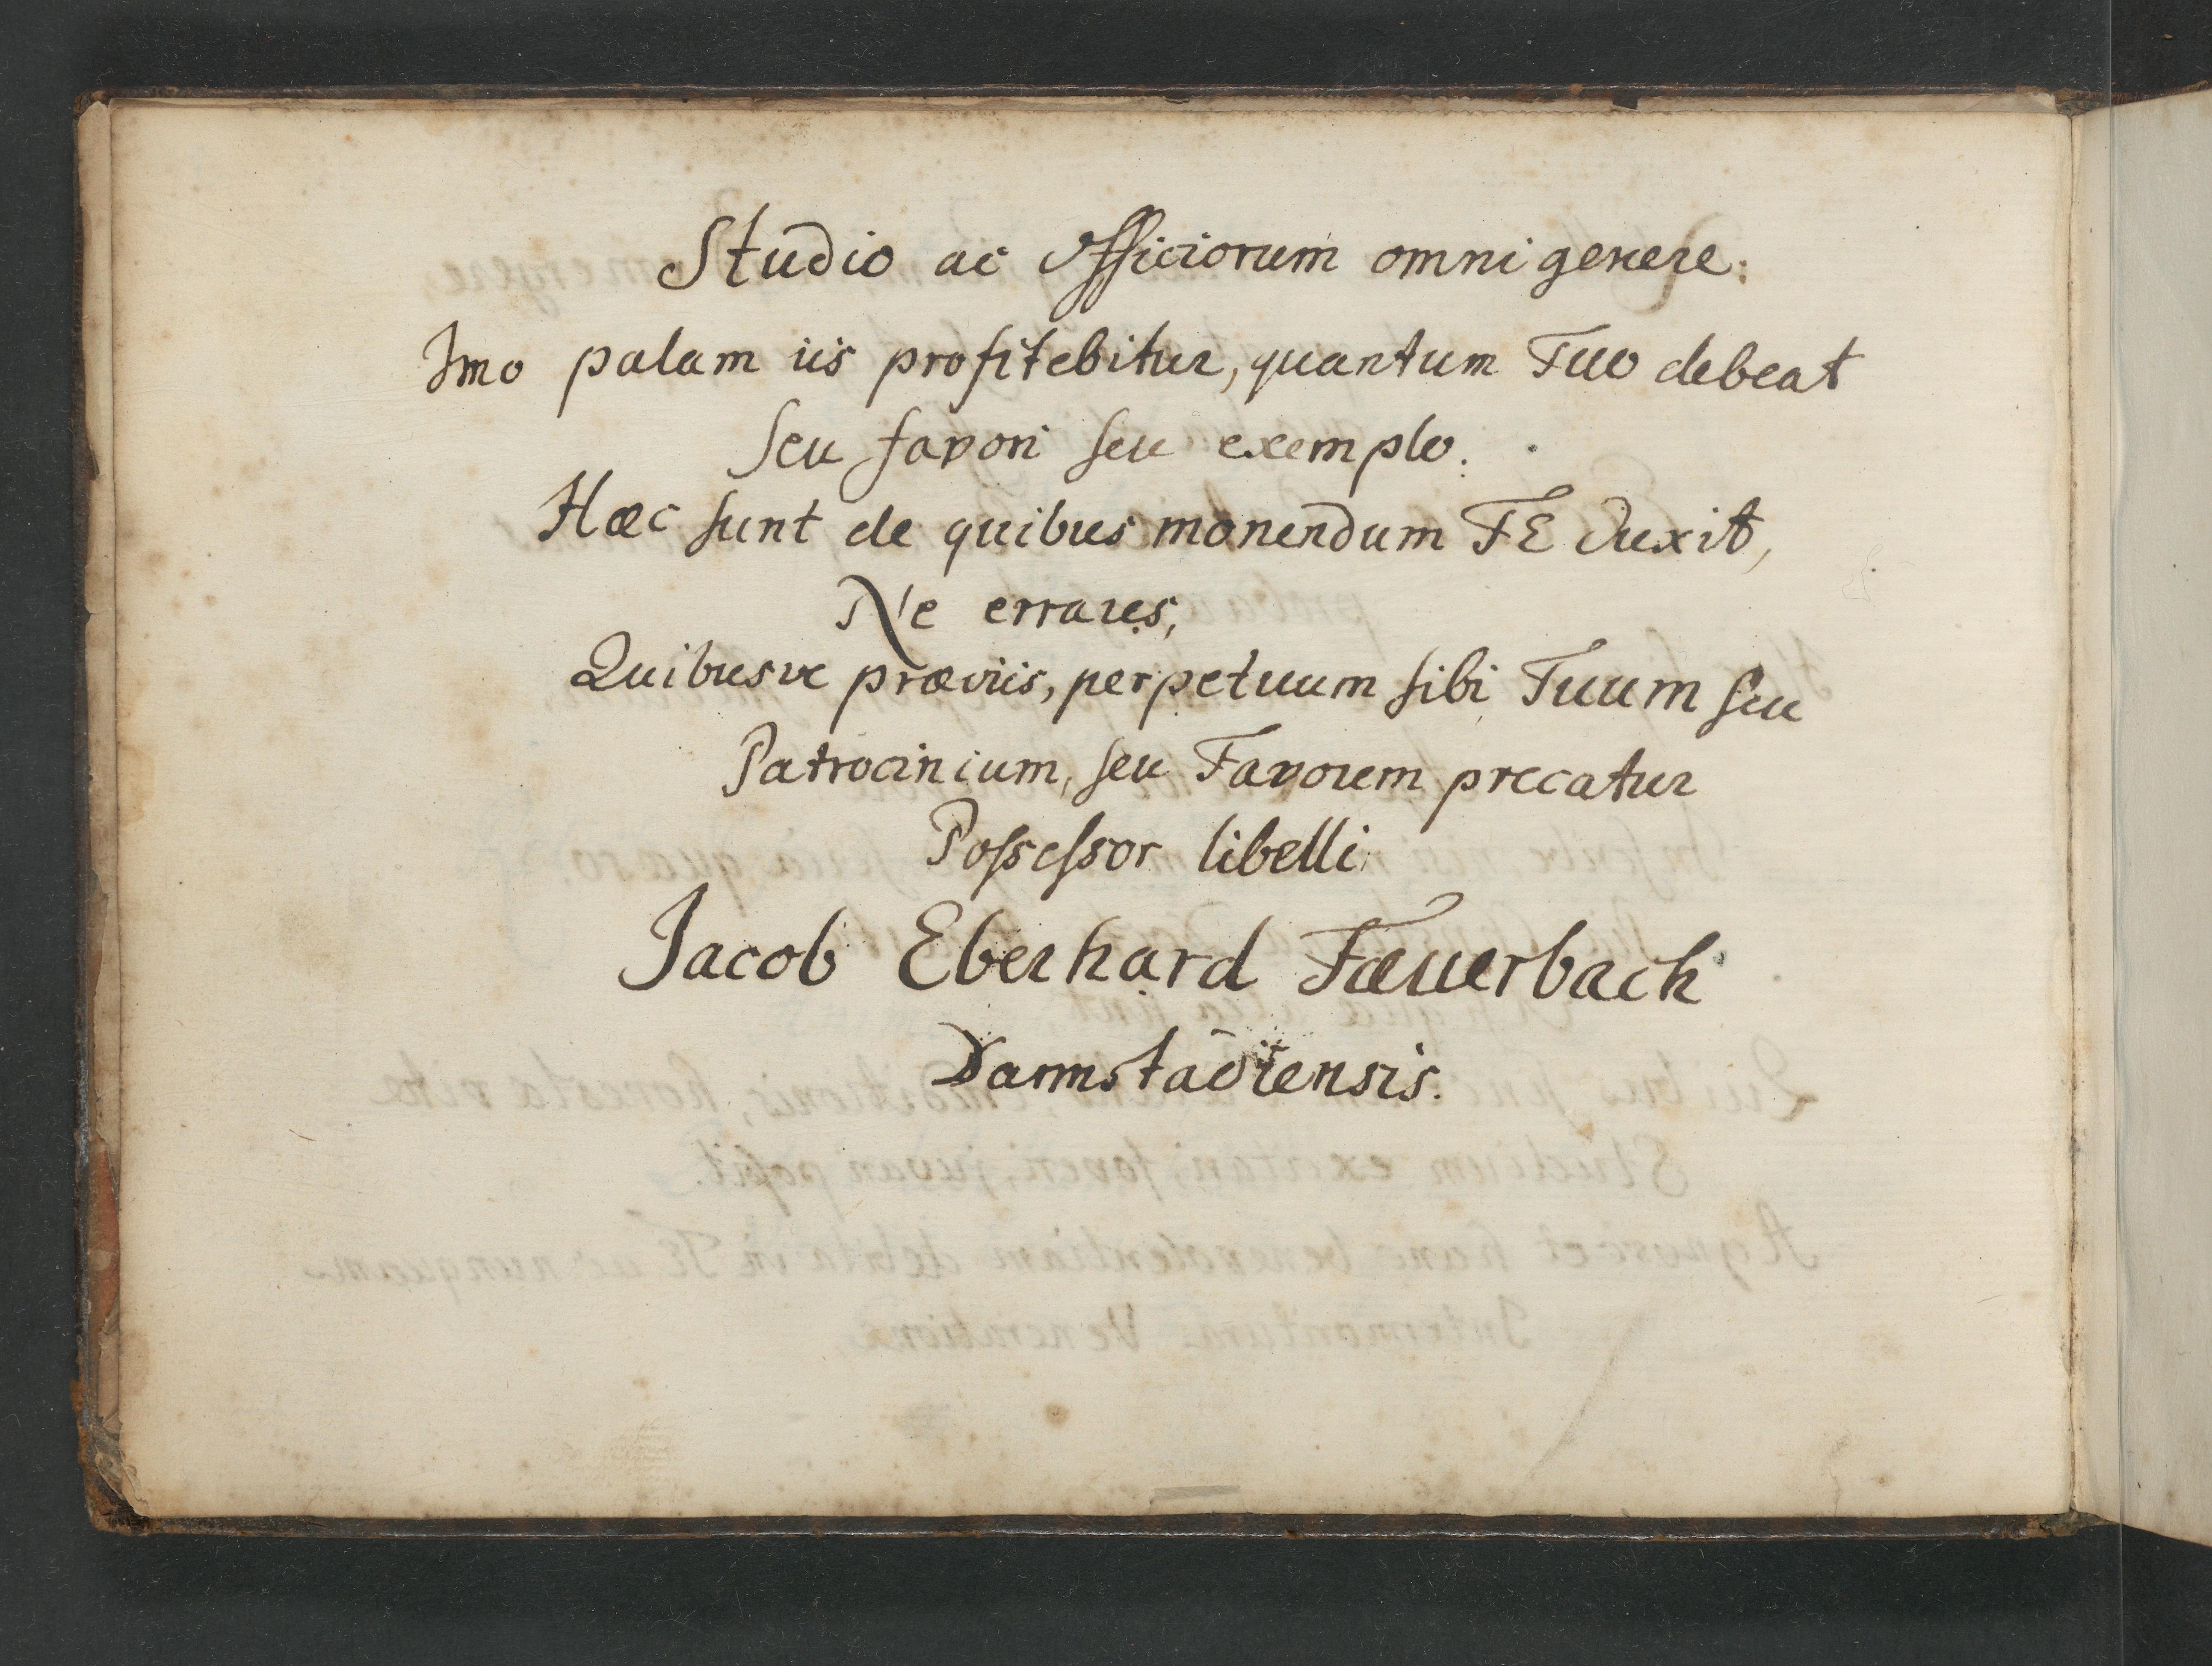 Studio ac Officiorum omni genere.
Imo palam iis profitebitur, quantum Tuo debeat
seu favori seu exemplo.
Hæc sunt de quibus monendum TE duxit,
Ne errares,
Quibusve præviis, perpetuum sibi Tuum seu
Patrocinium, seu Favorem precatur
Possessor libelli
Jacob Eberhard Fæuerbach
Darmstadtensis.